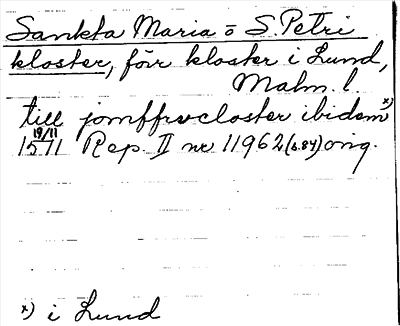 Sankta Maria o S. Petri
kloster, förr kloster i Lund,
Malm. l.
till jomffrvcloster ibidem x)
19/11
1511 Rep. II nr 11962 (s. 84) orig.
x) i Lund